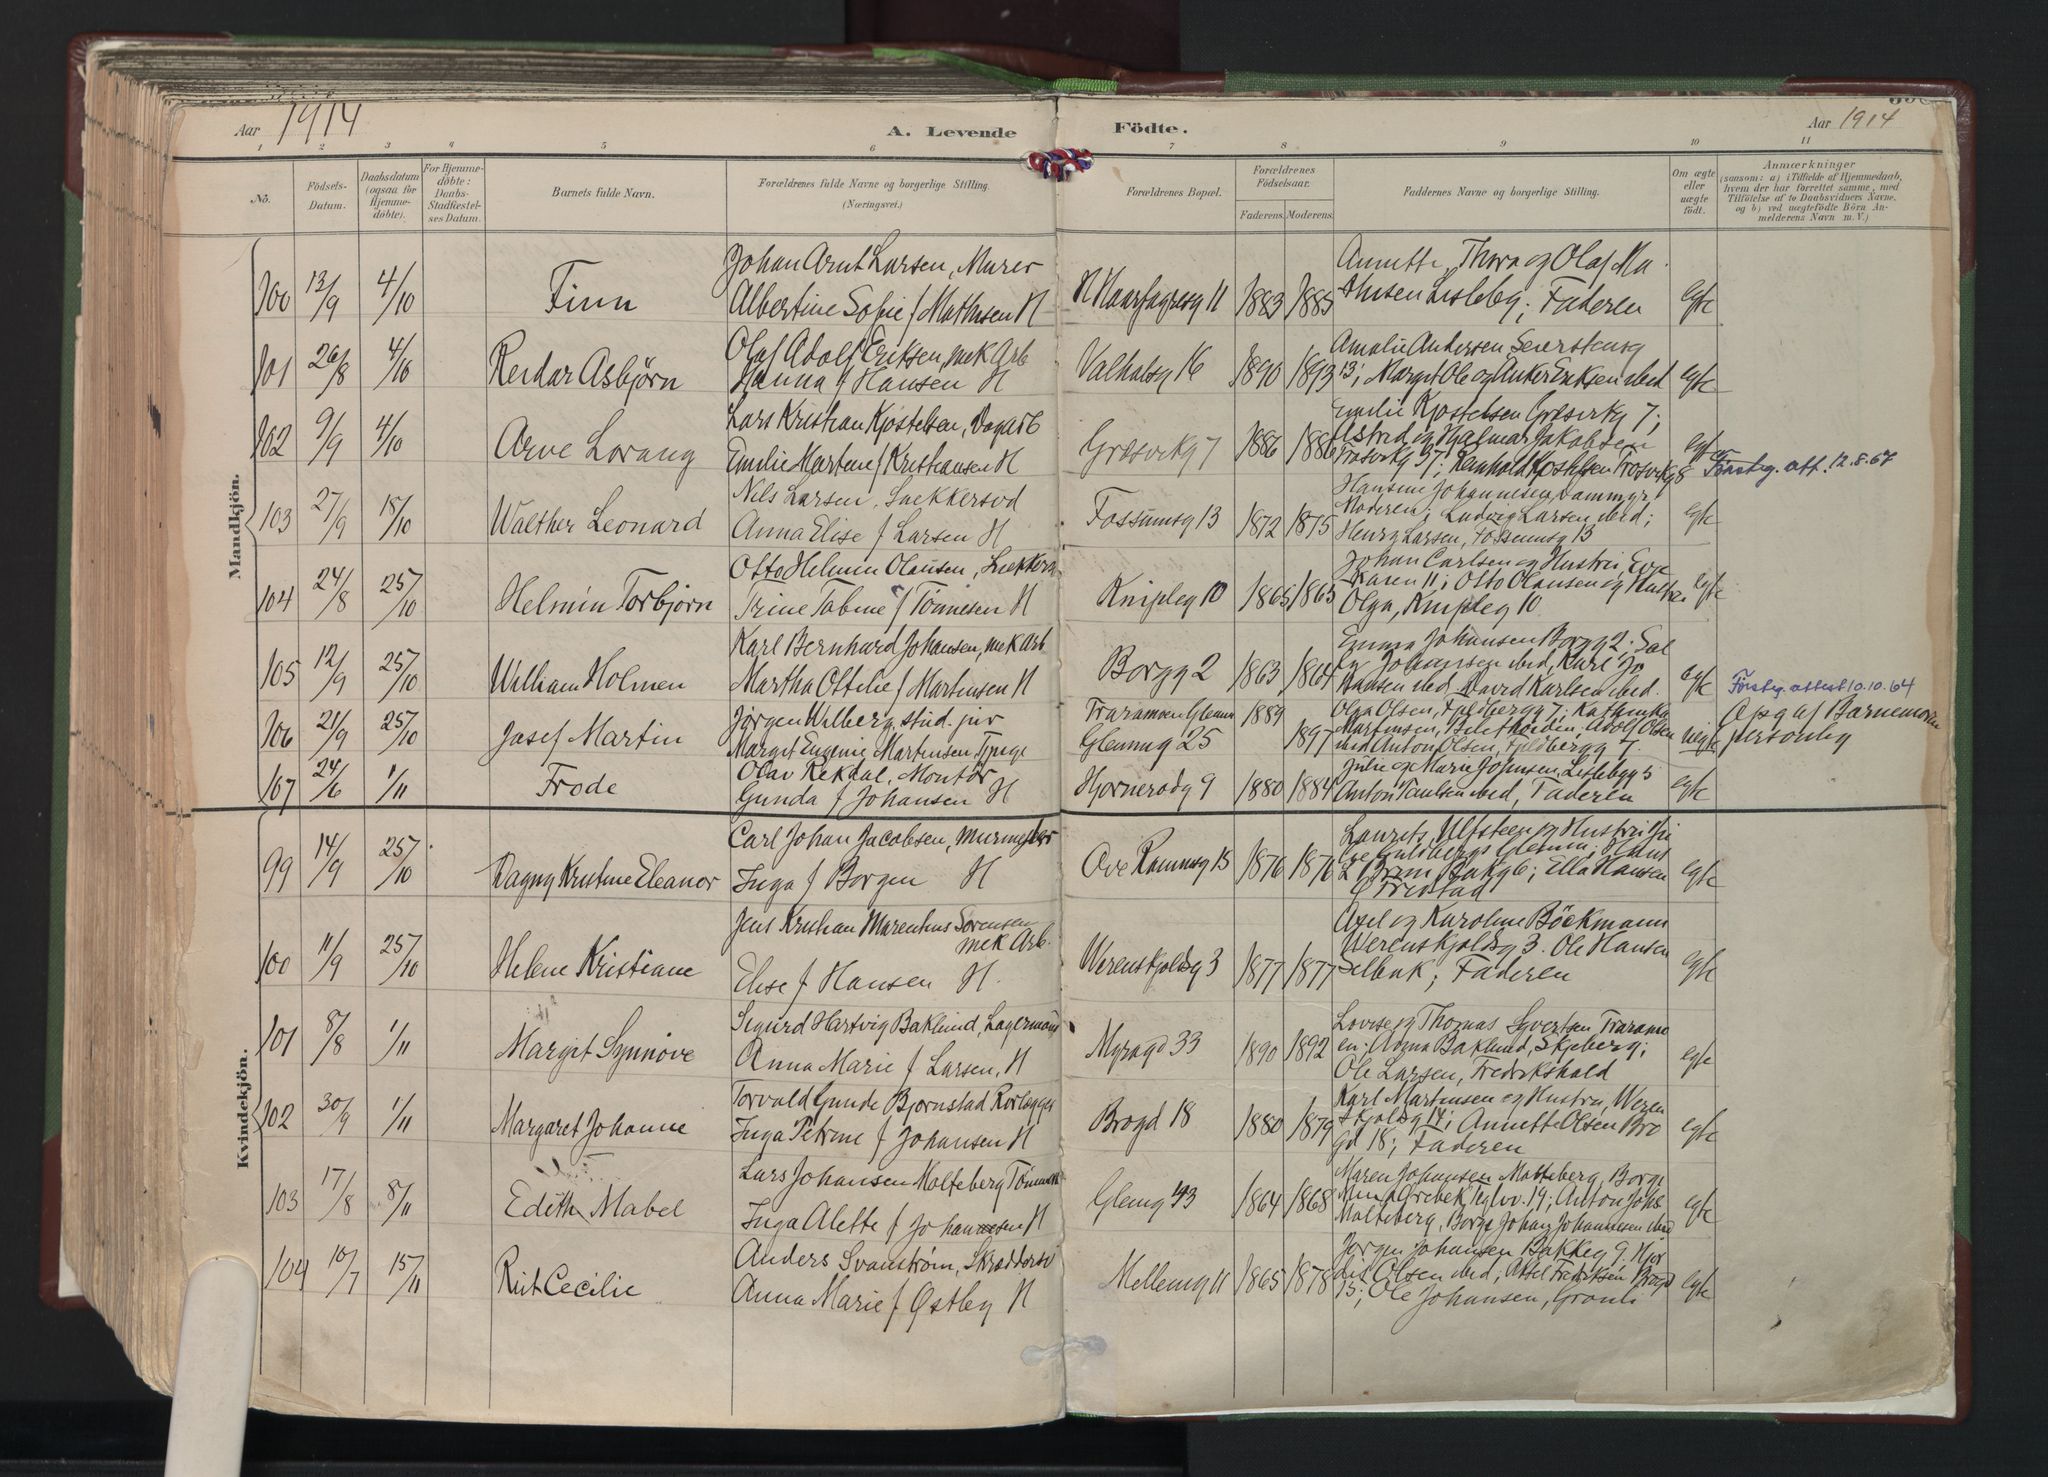 Aar 1914
A. Levende
Födte.
Aar 1914
1 2 3 4 5 6 7 8 9 10 11
No.
Födsels-Datum.
Daabsdatum (ogsaa for Hjemmedöbte).
For Hjemmedöbte: Daabs-Stadfæstelses Datum.
Barnets fulde Navn.
Forældrenes fulde Navne og borgerlige Stilling.
(Næringsvei.)
Forældrenes Bopæl.
Forældrenes Födselsaar.
Faderens. Moderens.
Faddernes Navne og borgerlige Stilling.
Om ægte eller uægte födt.
Anmærkninger
(saasom: a) i Tilfælde af Hjemmedaab, hvem der har forrettet samme, med Tilföielse af to Daabsvidners Navne, og b) ved uægtefödte Börn Anmelderens Navn m. V.)
Mandkjön.
100 13/9 4/10 Finn
Johan Arnt Larsen, Murer
Albertine Sofie f Mathisen H
H Haarfagresg 11 1883 1885
Annette, Thora og Olaf Ma
thisen Lisleby; Faderen
egte
101 26/8 4/10 Reidar Asbjörn
Olaf Adolf Eriksen, mek Arb
Hanna f Hansen H
Valhalsg 16 1890 1893
Amalie Andersen Seierstensg
13; Margit Ole og Anker Eriksen ibid
egte
102 9/9 4/10 Arve Lorang
Lars Kristian Kjostelsen, Dagarb
Emilie Martine f Kristiansen H
Græsvikg 7 1886 1886
Emilie Kjostelsen Græsvikg 7;
Astrid og Hjalmar Jakobsen
Trosvikg 37; Reinhold Kjostelsen Trosvikg 8
egte
Försteg. att. 12.8.67
103 27/9 18/10 Walther Leonard
Nils Larsen, Snekkersvd
Anna Elise f Larsen H
Fossumsg 13 1872 1875
Hansine Johannesen Dammyr;
Moderen; Ludvig Larsen ibid;
Henry Larsen, Fossumsg 13
egte
104 24/8 25/10 Helmin Torbjörn
Otto Helmin Olausen, Snekker
Trine Tobine f Tönnesen H
Knipleg 10 1865 1865
Johan Carlsen og Hustru, Evje
Otto Olausen og Hustru
Olga, Knipleg 10
egte
105 12/9 25/10 William Holmen
Karl Bernhard Johansen, mek Arb
Martha Ottilie f Martinsen H
Borgg 2 1863 1864
Emma Johansen Borgg 2; Sal
ly Johansen ibid, Karl Jo
hansen ibid David Karlsen ibid.
egte
Försteg. attest 10.10.64
106 21/9 25/10 Josef Martin
Jörgen Wilberg, stud. jur
Margit Eugenie Martinsen Tjpige
Traramoen Glemm 1889
Glemmg 25 1897
Olga Olsen, Fjeldbergg 7; Kathinka
Martinsen, Adolf Olsen
ibid Anton Olsen, Fjeldbergg 7.
uegte
Opg af Barnemoren
personlig
107 24/6 1/11 Frode
Olav Rekdal, Montör
Gunda f Johansen H
Hjornerödg 9 1880 1884
Julie og Marie Johnsen, Lislebyg 5
Anton Paulsen ibid, Faderen
egte
Kvindekjön.
99 14/9 25/10 Dagny Kristine Eleanor
Carl Johan Jacobsen, murmester
Inga f Borgen H
Ove Rammsg 15 1876 1876
Laurits Ulfsteen og Hustru
Glemm; Hans
Bakkg 6; Ella Hansen
Fredstad
egte
100 11/9 25/10 Helene Kristiane
Jens Kristian Marenius Sorensen
mek Arb.
Elise f Hansen H.
Werenskjoldsg 3 1877 1877
Axel og Karoline Böckmann
Werenskjoldsg 3. Ole Hansen
Selbak; Faderen
egte
101 8/8 1/11 Margit Synnöve
Sigurd Hartvig Baklund, Lagermand
Anna Marie f Larsen, H
Myragd 33 1890 1892
Lovise og Thomas Syvertsen Traramo
en; Anna Baklund, Skjeberg;
Ole Larsen, Fredrikshald
egte
102 30/9 1/11 Margaret Johanne
Torvald Gunde Bjornstad Rörlægger
Inga Petrine f Johansen H
Brogd 18 1880 1879
Karl Martinsen og Hustru, Weren
skjoldsg 14; Annette Olsen Bro
gd 18; Faderen
egte
103 17/8 8/11 Edith Mabel
Lars Johansen Molteberg Tömmerm
Inga Alette f Johannesen H
Glemg 43 1864 1868
Maren Johansen Molteberg, Borge
Anton Johs
Molteberg, Borge Johan Johannesen ibid
egte
104 10/7 15/11 Rut Cecilie
Anders Svanström, Skræddersv
Anna Marie f Østby H
Mellemg 11 1865 1878
Jörgen Johansen Bakkeg 9, Hjor
dis Olsen ibid; Aksel Fredriksen Brogd
15; Ole Johansen, Granli
egte